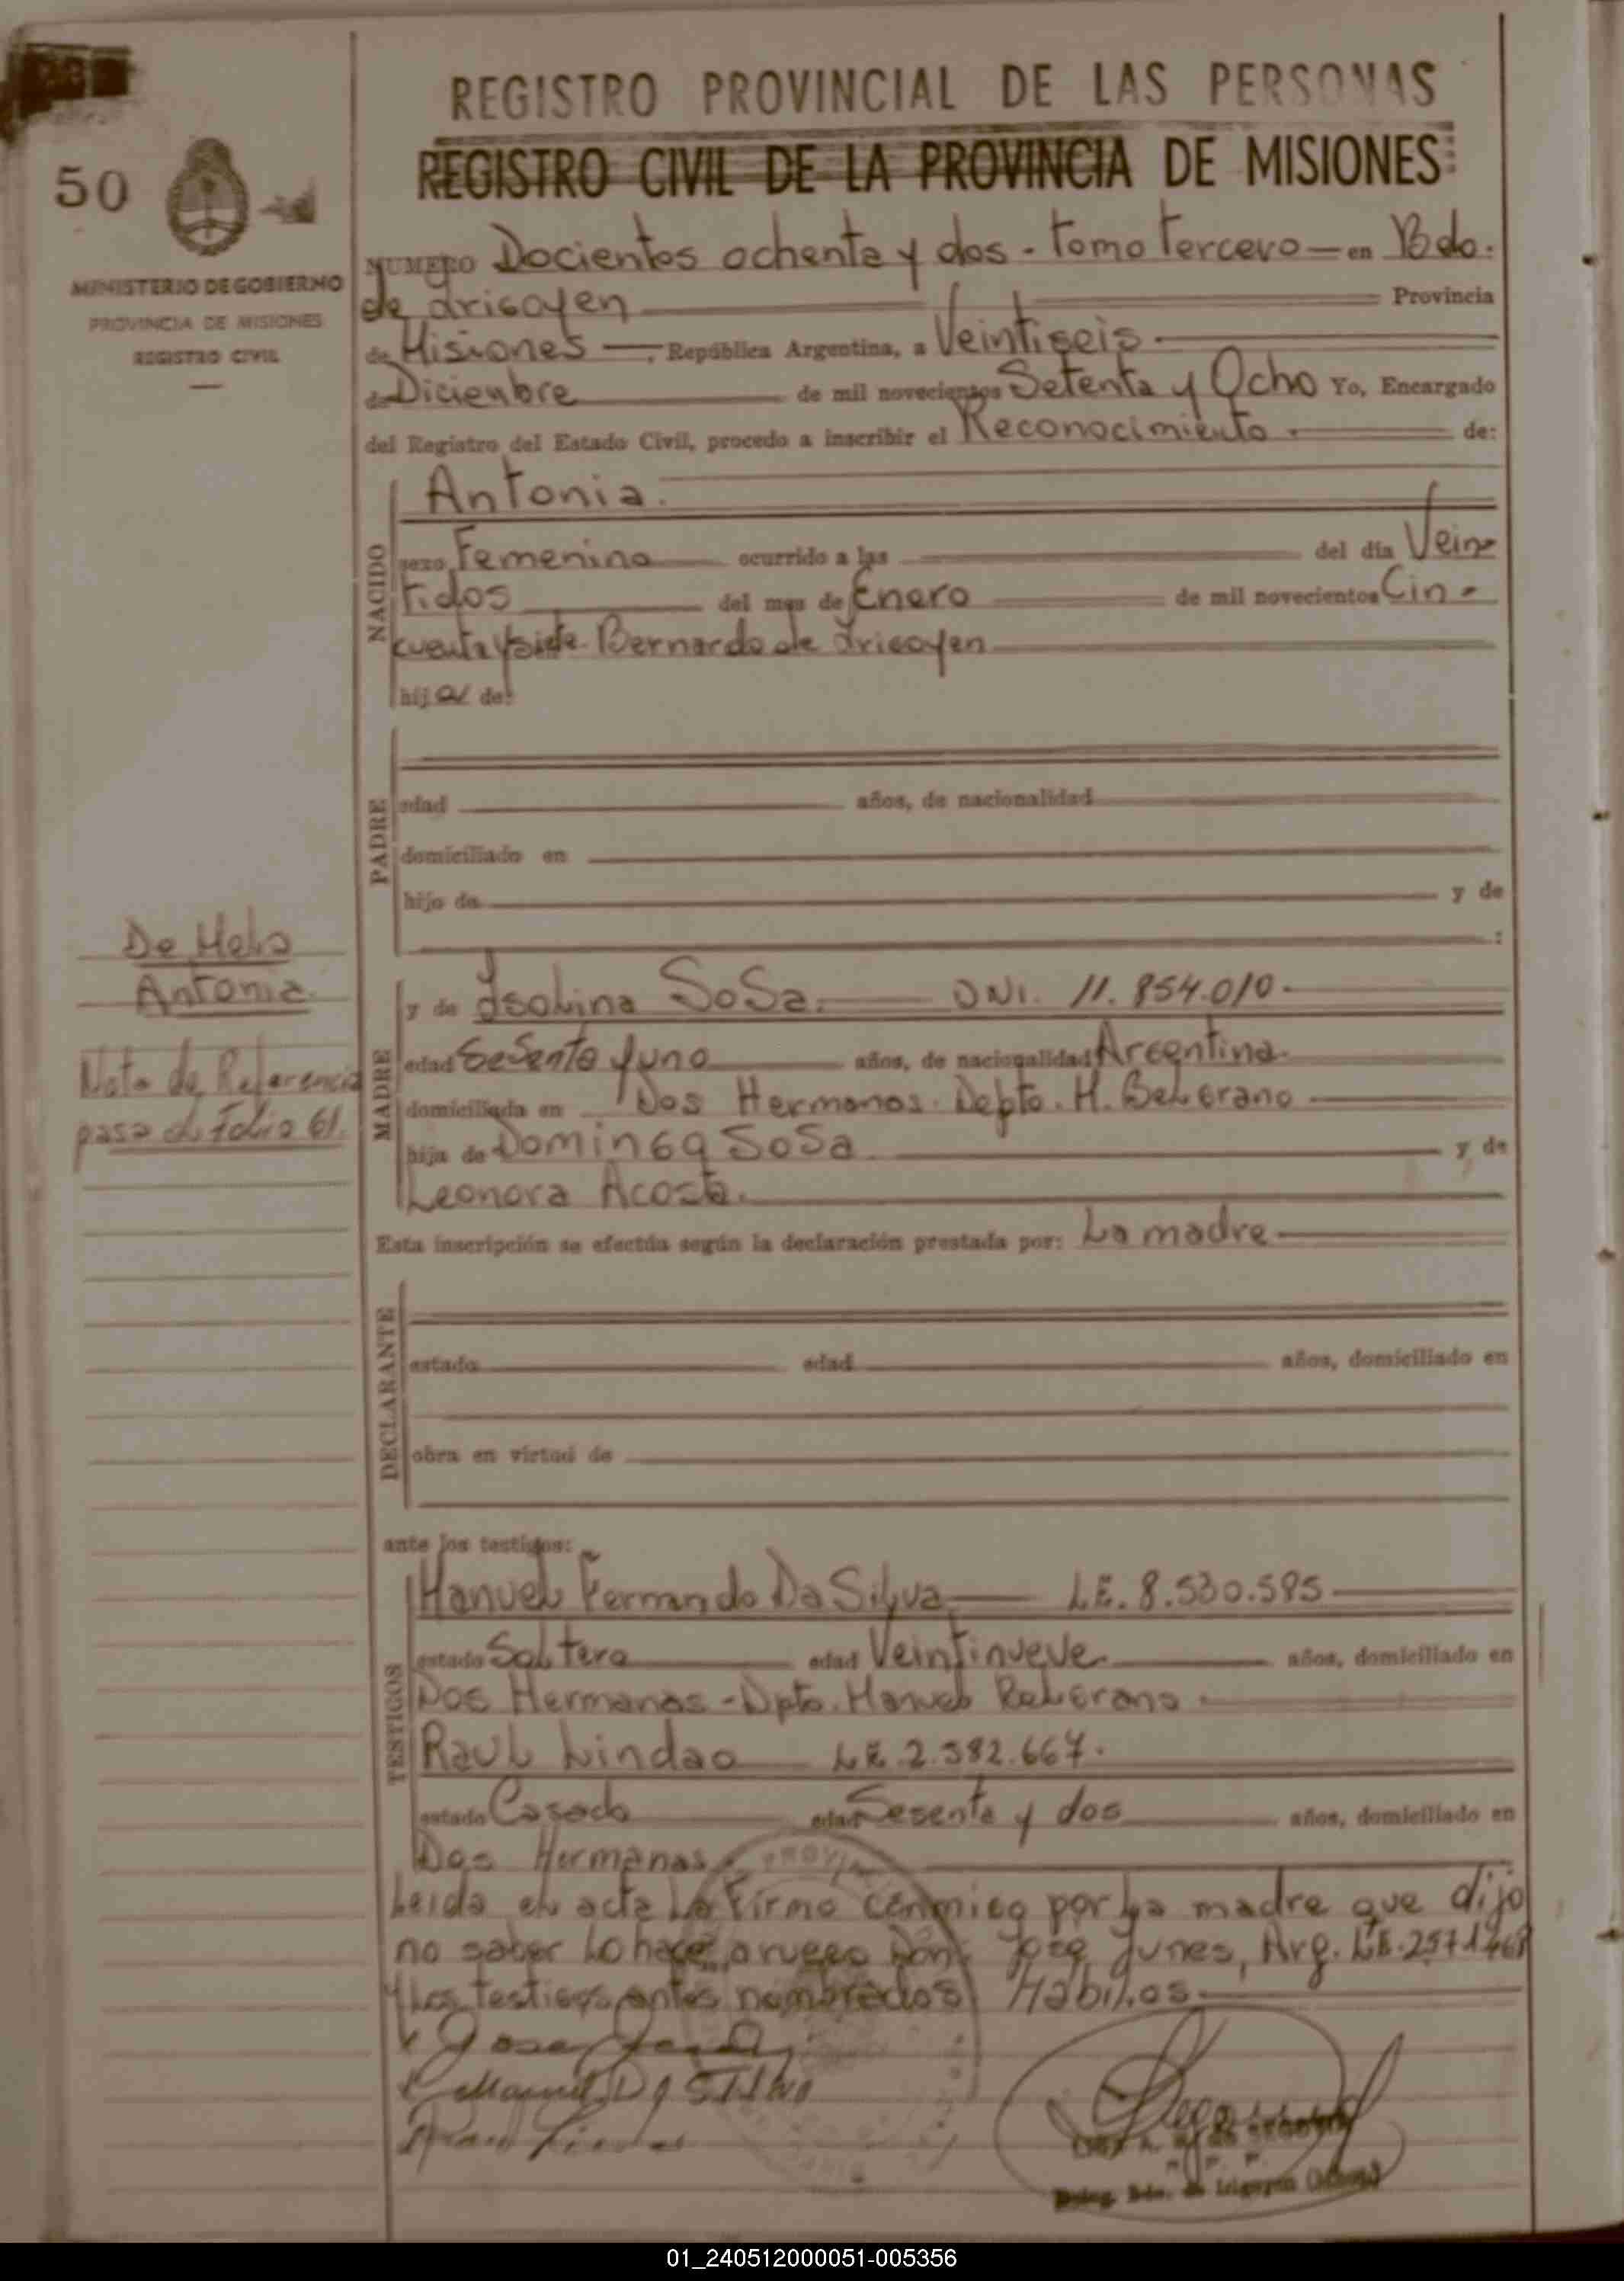 REGISTRO PROVINCIAL DE LAS PERSONAS
REGISTRO CIVIL DE LA PROVINCIA DE MISIONES
50
MINISTERIO DE GOBIERNO
PROVINCIA DE MISIONES
REGISTRO CIVIL
NUMERO Docientos ochenta y dos - Tomo Tercero — en Bdo.
de Irigoyen Provincia
de Misiones —, República Argentina, a Veintiseis
de Diciembre de mil novecientos Setenta y Ocho Yo, Encargado
del Registro del Estado Civil, procedo a inscribir el Reconocimiento de:
NACIDO
Antonia.
sexo Femenino ocurrido a las del día Vein
tidos del mes de Enero de mil novecientos Cin-
cuenta y siete. Bernardo de Irigoyen
hija de:
PADRE
edad años, de nacionalidad
domiciliado en
hijo de y de
:
De Melo
Antonia.
Nota de Referencia
pasa al Folio 61.
MADRE
y de Isolina Sosa. DNI. 11.854.010.
edad Sesenta y uno años, de nacionalidad Argentina.
domiciliada en Dos Hermanas. Depto. M. Belgrano
hija de Domingo Sosa y de
Leonora Acosta.
Esta inscripción se efectúa según la declaración prestada por: La madre
DECLARANTE
estado edad años, domiciliado en
obra en virtud de
ante los testigos:
TESTIGOS
Manuel Fernando Da Silva — L.E. 8.530.595
estado Soltero edad Veintinueve años, domiciliado en
Dos Hermanas - Dpto. Manuel Belgrano
Raul Lindao L.E. 2.582.667.
estado Casado edad Sesenta y dos años, domiciliado en
Dos Hermanas
Leida el acta La Firma conmigo por La madre que dijo
no saber Lo hace a ruego Don Jose Junes, Arg. L.E.
y Los testigos antes nombrados Habiles.
Manuel Da Silva
Deleg. Bdo. de Irigoyen
01_240512000051-005356